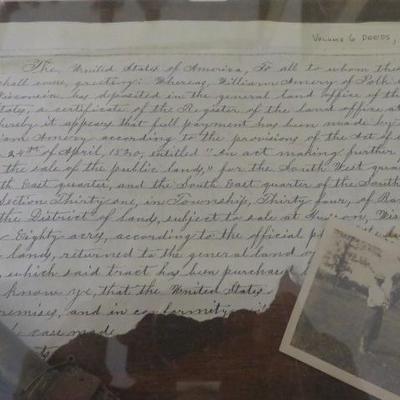 Volume 6 Deeds,
The United States of America, To all to whom these
shall come, greeting: Whereas, William Amery of Polk
Wisconsin has deposited in the general land office of the
States, a certificate of the Register of the land office at
whereby it appears that full payment has been made by
iam Amery according to the provisions of the Act of
24th of April, 1820, entitled "an act making further
the sale of the public lands," for the South West quar
th East quarter, and the South East quarter of the South
Section Thirty one, in Township, Thirty four, of Ran
the District of land, subject to sale at Hudson, Wis
Eighty acres, according to the official p
land, returned to the general land o
which said tract has been purchased
know ye, that the United States
remises, and in conformity
case made